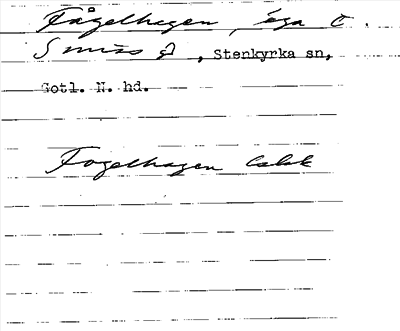 Fågelhagen, äga t.
Smiss g, Stenkyrka sn,
Gotl. N. hd.
Fogelhagen